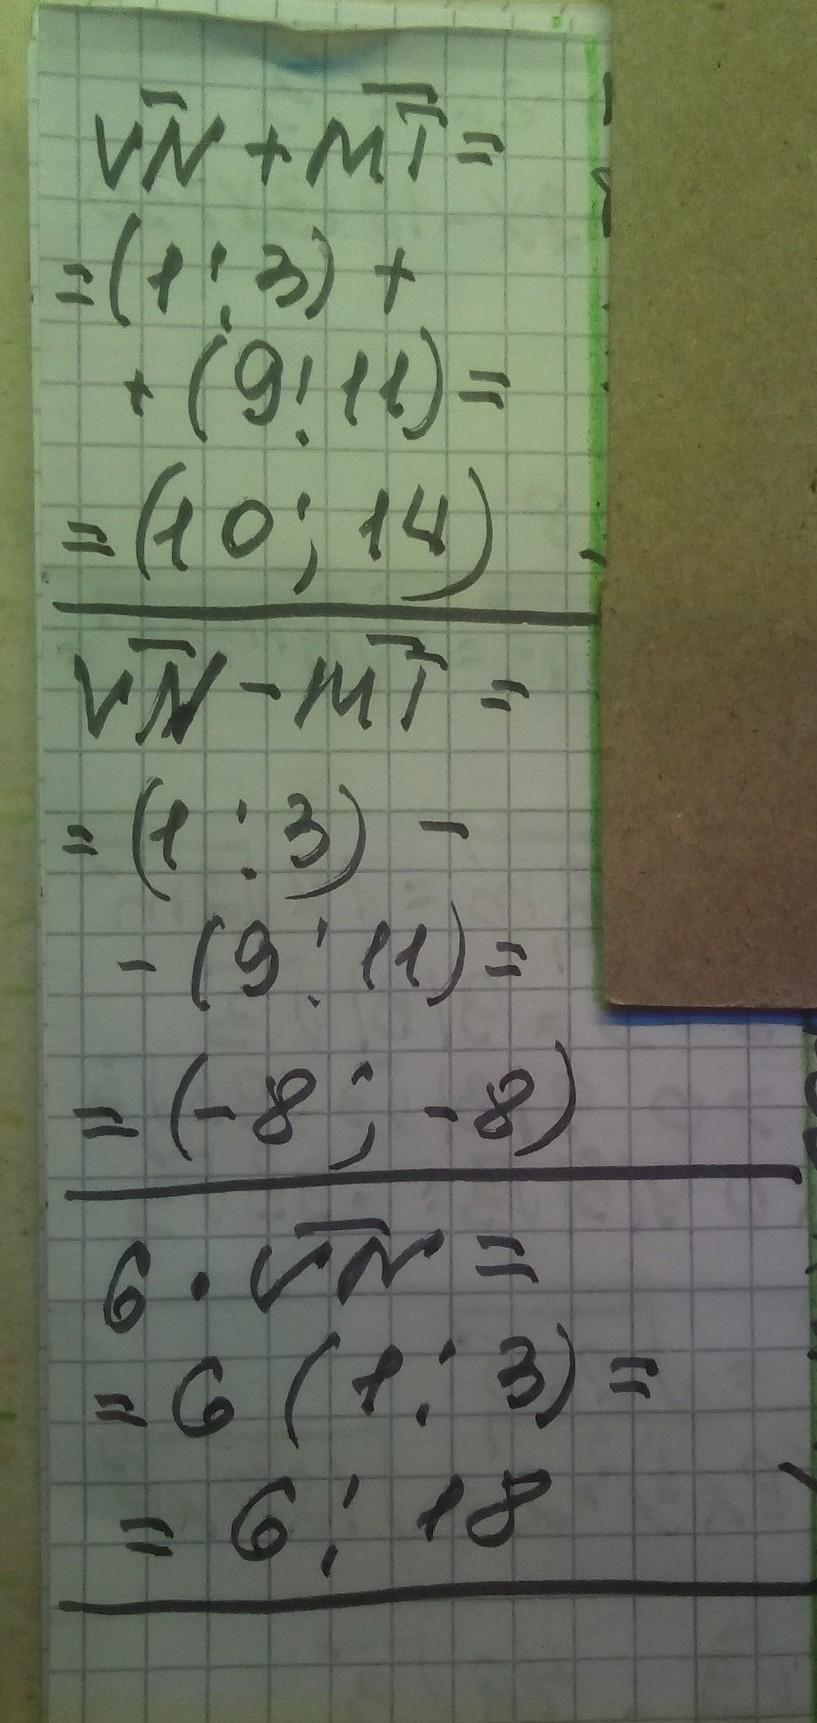 VN + MT =
= (1 ; 3) +
+ (9 ; 11) =
= (10 ; 14)
VN - MT =
= (1 ; 3) -
- (9 ; 11) =
= (-8 ; -8)
6 · VN =
= 6 (1 ; 3) =
= 6 ; 18